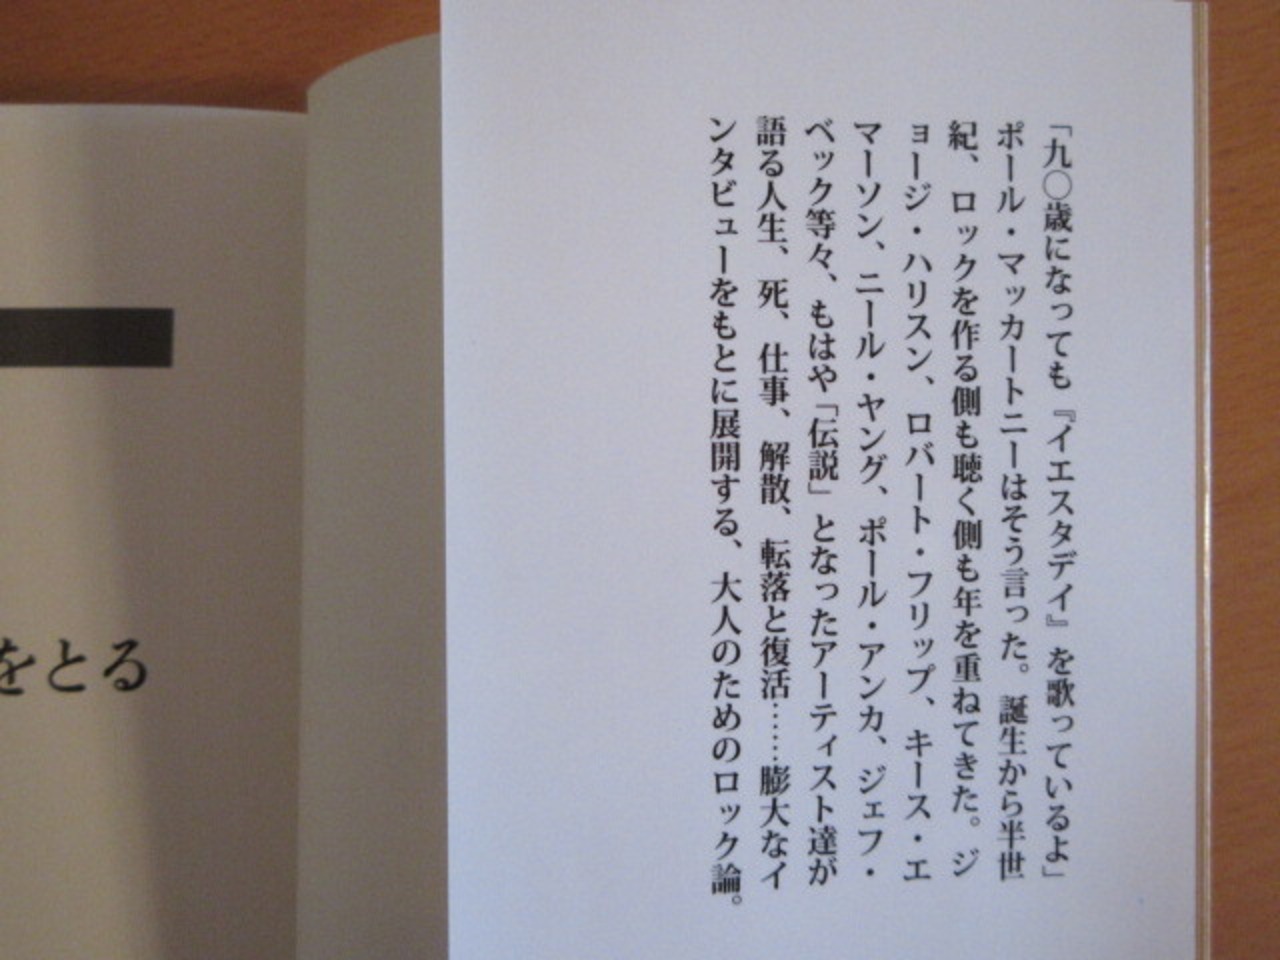 「九〇歳になっても『イエスタデイ』を歌っているよ」
ポール・マッカートニーはそう言った。誕生から半世
紀、ロックを作る側も聴く側も年を重ねてきた。ジ
ョージ・ハリスン、ロバート・フリップ、キース・エ
マーソン、ニール・ヤング、ポール・アンカ、ジェフ・
ベック等々、もはや「伝説」となったアーティスト達が
語る人生、死、仕事、解散、転落と復活……膨大なイ
ンタビューをもとに展開する、大人のためのロック論。
をとる